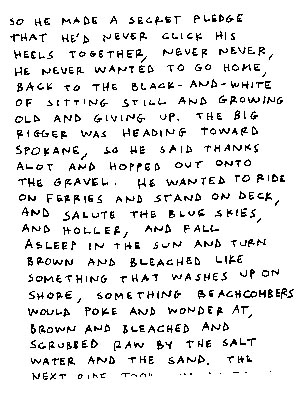 SO HE MADE A SECRET PLEDGE
THAT HE'D NEVER CLICK HIS
HEELS TOGETHER, NEVER NEVER,
HE NEVER WANTED TO GO HOME,
BACK TO THE BLACK-AND-WHITE
OF SITTING STILL AND GROWING
OLD AND GIVING UP. THE BIG
RIGGER WAS HEADING TOWARD
SPOKANE, SO HE SAID THANKS
ALOT AND HOPPED OUT ONTO
THE GRAVEL. HE WANTED TO RIDE
ON FERRIES AND STAND ON DECK,
AND SALUTE THE BLUE SKIES,
AND HOLLER, AND FALL
ASLEEP IN THE SUN AND TURN
BROWN AND BLEACHED LIKE
SOMETHING THAT WASHES UP ON
SHORE, SOMETHING BEACHCOMBERS
WOULD POKE AND WONDER AT,
BROWN AND BLEACHED AND
SCRUBBED RAW BY THE SALT
WATER AND THE SAND. THE
NEXT RIDE TOOK